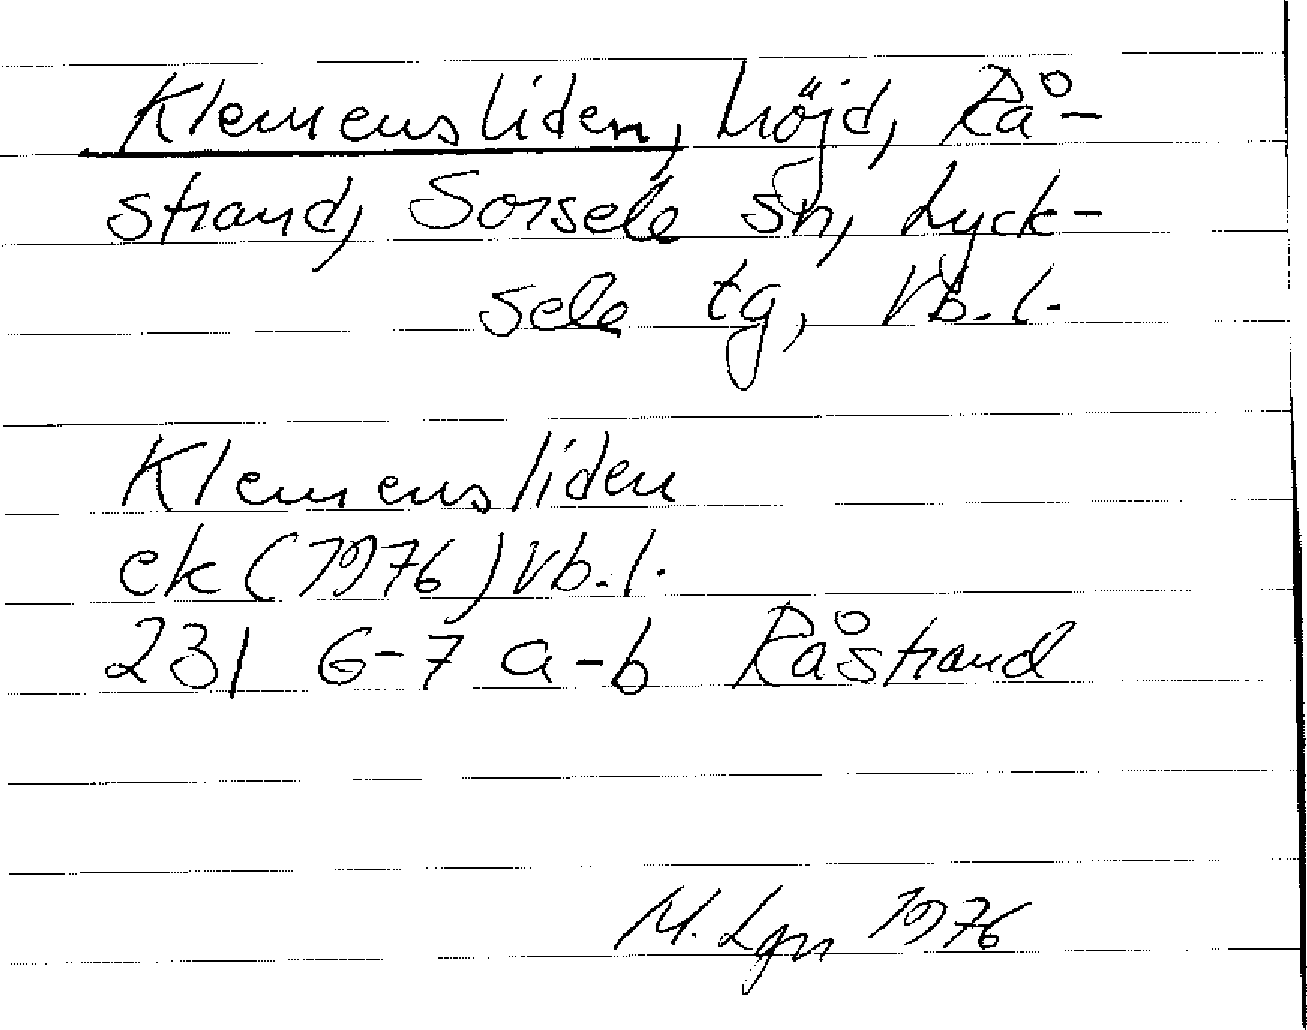 Klemensliden, höjd, Rå-
strand, Sorsele sn, Lyck-
sele tg, Vb. l.
Klemensliden
ek (1976) Vb. l.
231 6-7 a-b Råstrand
M. Lgn 1976